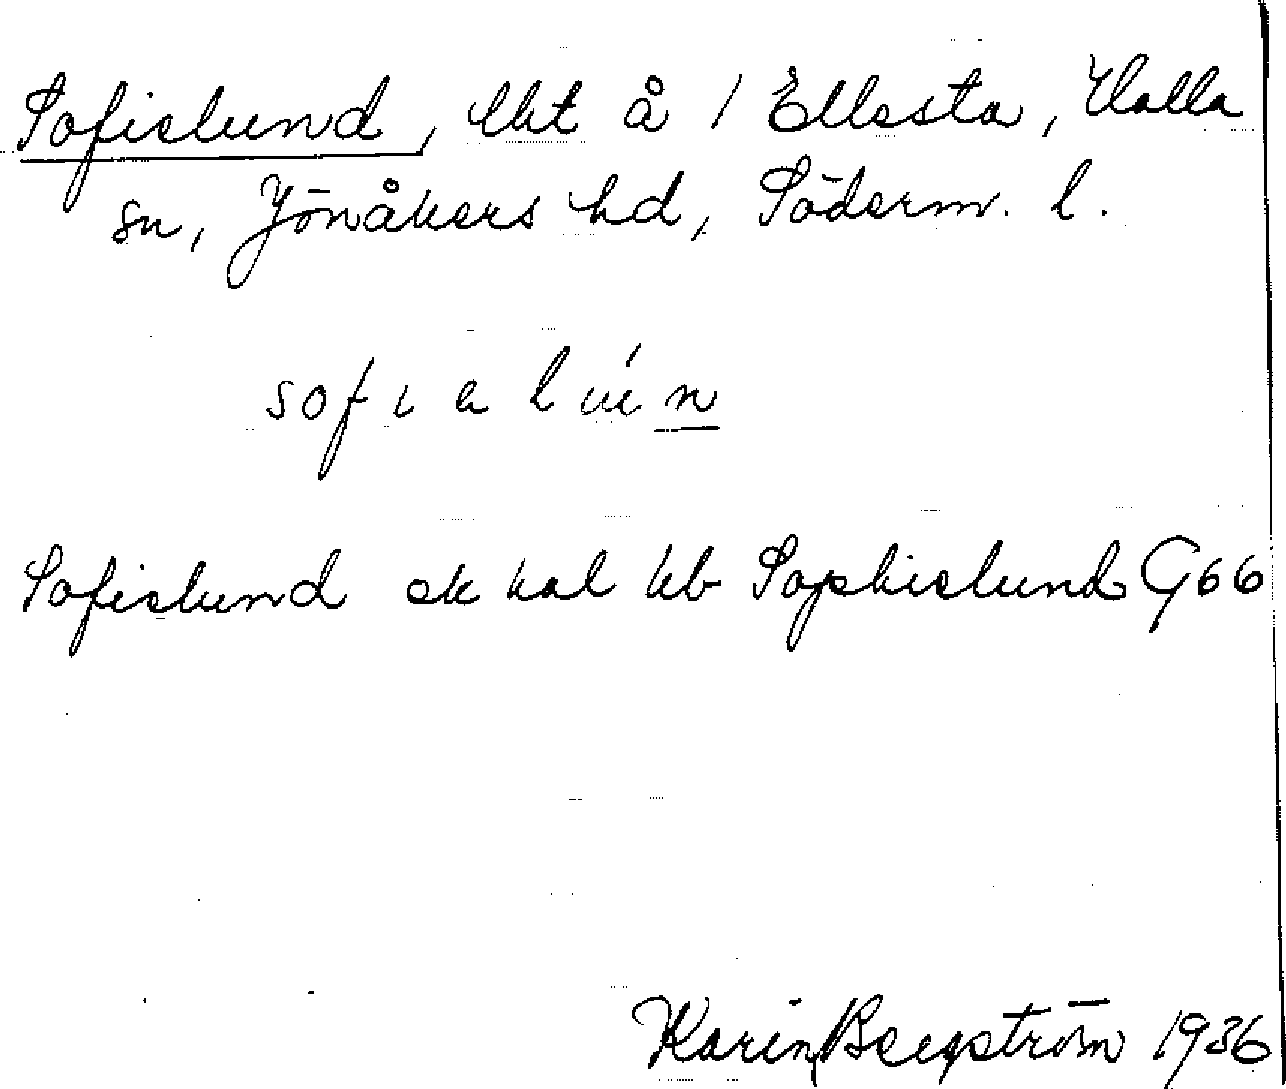 Sofielund, lht å 1 Ellesta, Halla
sn, Jönåkers hd, Söderm. l.
sofielún
Sofielund ek kal kb Sophielund G66
Karin Bergström 1936